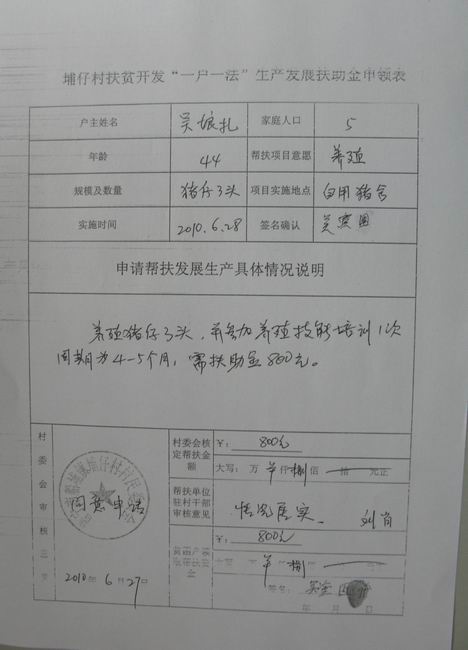 埔仔村扶贫开发“一户一法”生产发展扶助金申领表
户主姓名 吴娘扎 家庭人口 5
年龄 44 帮扶项目意愿 养殖
规模及数量 猪仔3头 项目实施地点 自用猪舍
实施时间 2010.6.28 签名确认 吴
申请帮扶发展生产具体情况说明
养殖猪仔3头，并参加养殖技能培训1次
周期为4-5个月，需扶助金800元。
村委会审核意见
同意申请
2010年6月27日
村委会核定帮扶金额
¥：800元
大写：万 仟捌佰 拾 元正
帮扶单位驻村干部审核意见
情况属实
刘肖
¥：800元
捌
签名：吴
年 月 日